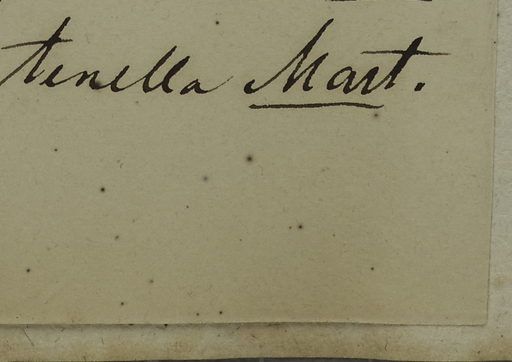 tenella Mart.